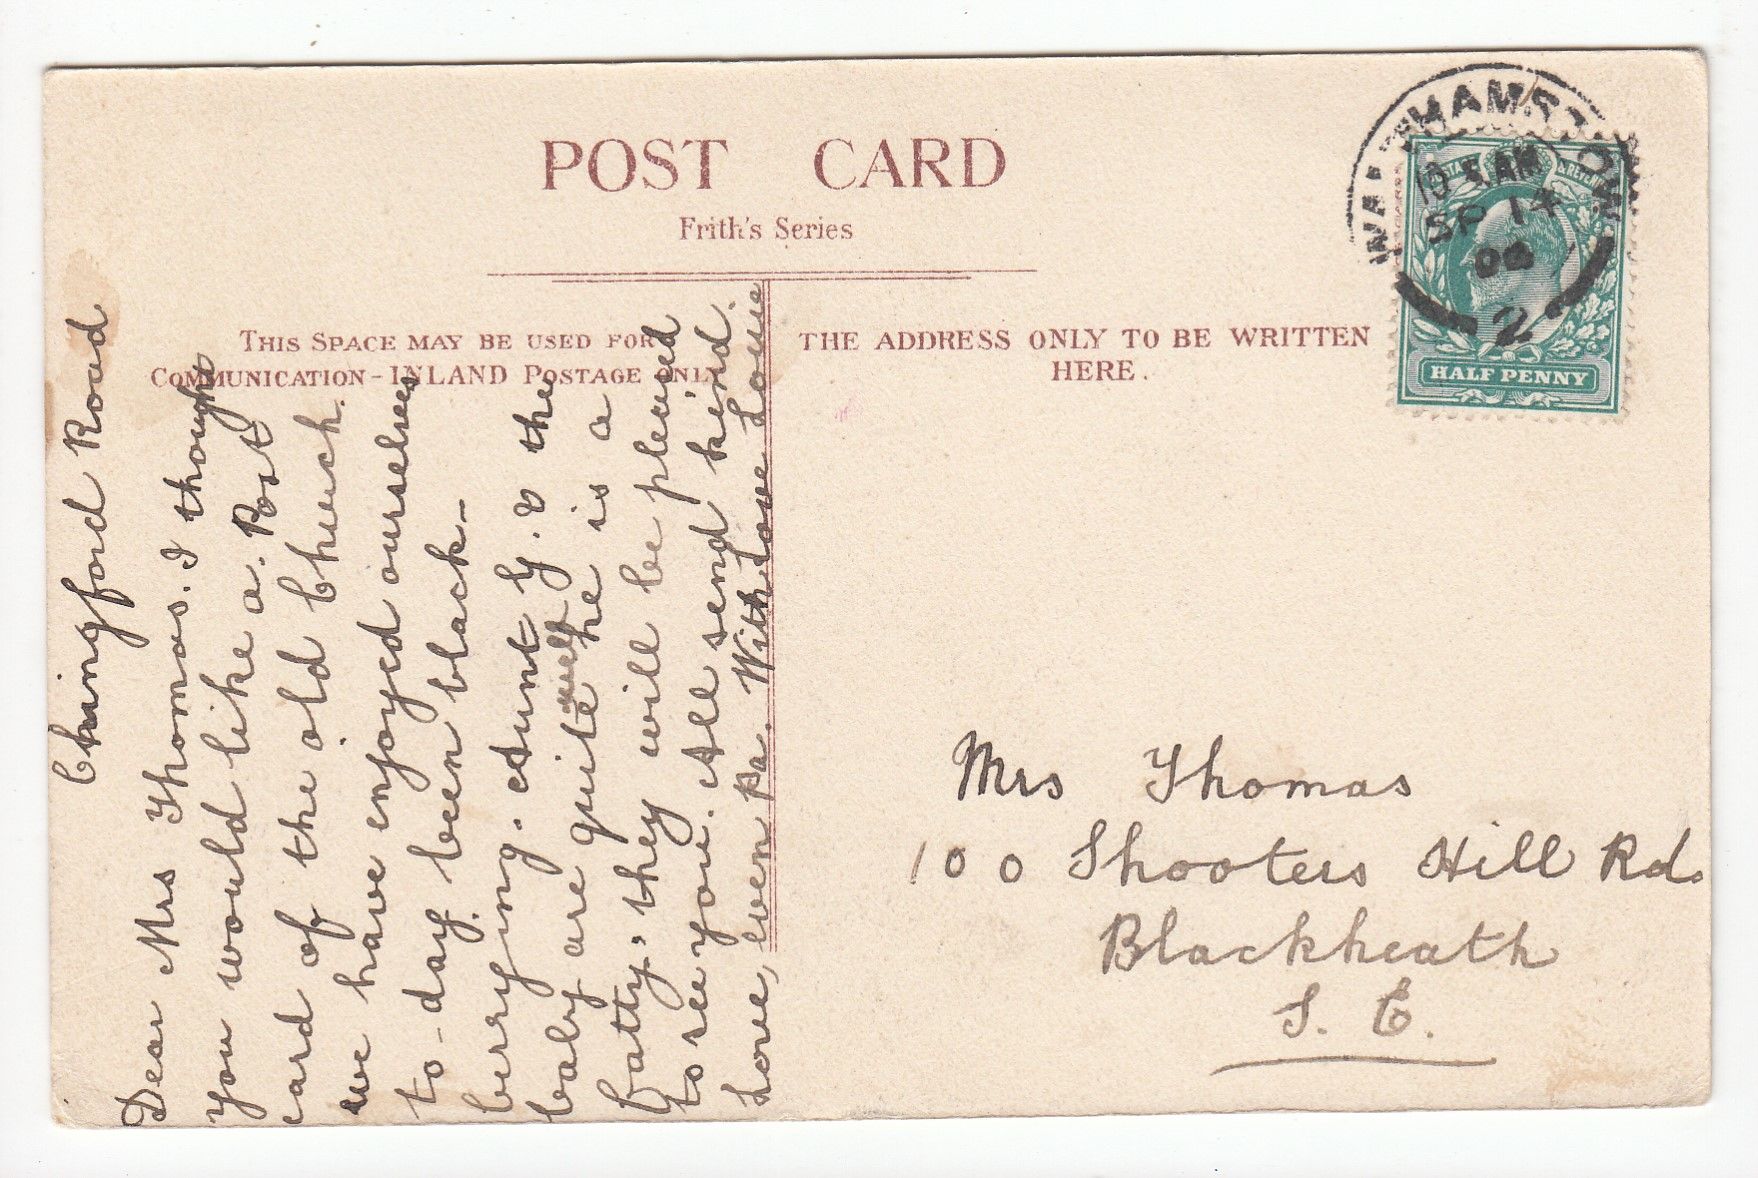 POST CARD
Frith's Series
THIS SPACE MAY BE USED FOR
COMMUNICATION - INLAND POSTAGE ONLY
THE ADDRESS ONLY TO BE WRITTEN
HERE.
WALTHAMSTOW
SP 14
2
HALF PENNY
Chingford Road
Dear Mrs Thomas. I thought
you would like a. Post
card of the old Church.
we have enjoyed ourselves
to-day been black-
berrying. Aunt G. & the
baby are quite well he is a
fatty. they will be pleased
to see you. All send kind.
Love, even pa. With Love Louie
Mrs Thomas
100 Shooters Hill Rd.
Blackheath
S. E.